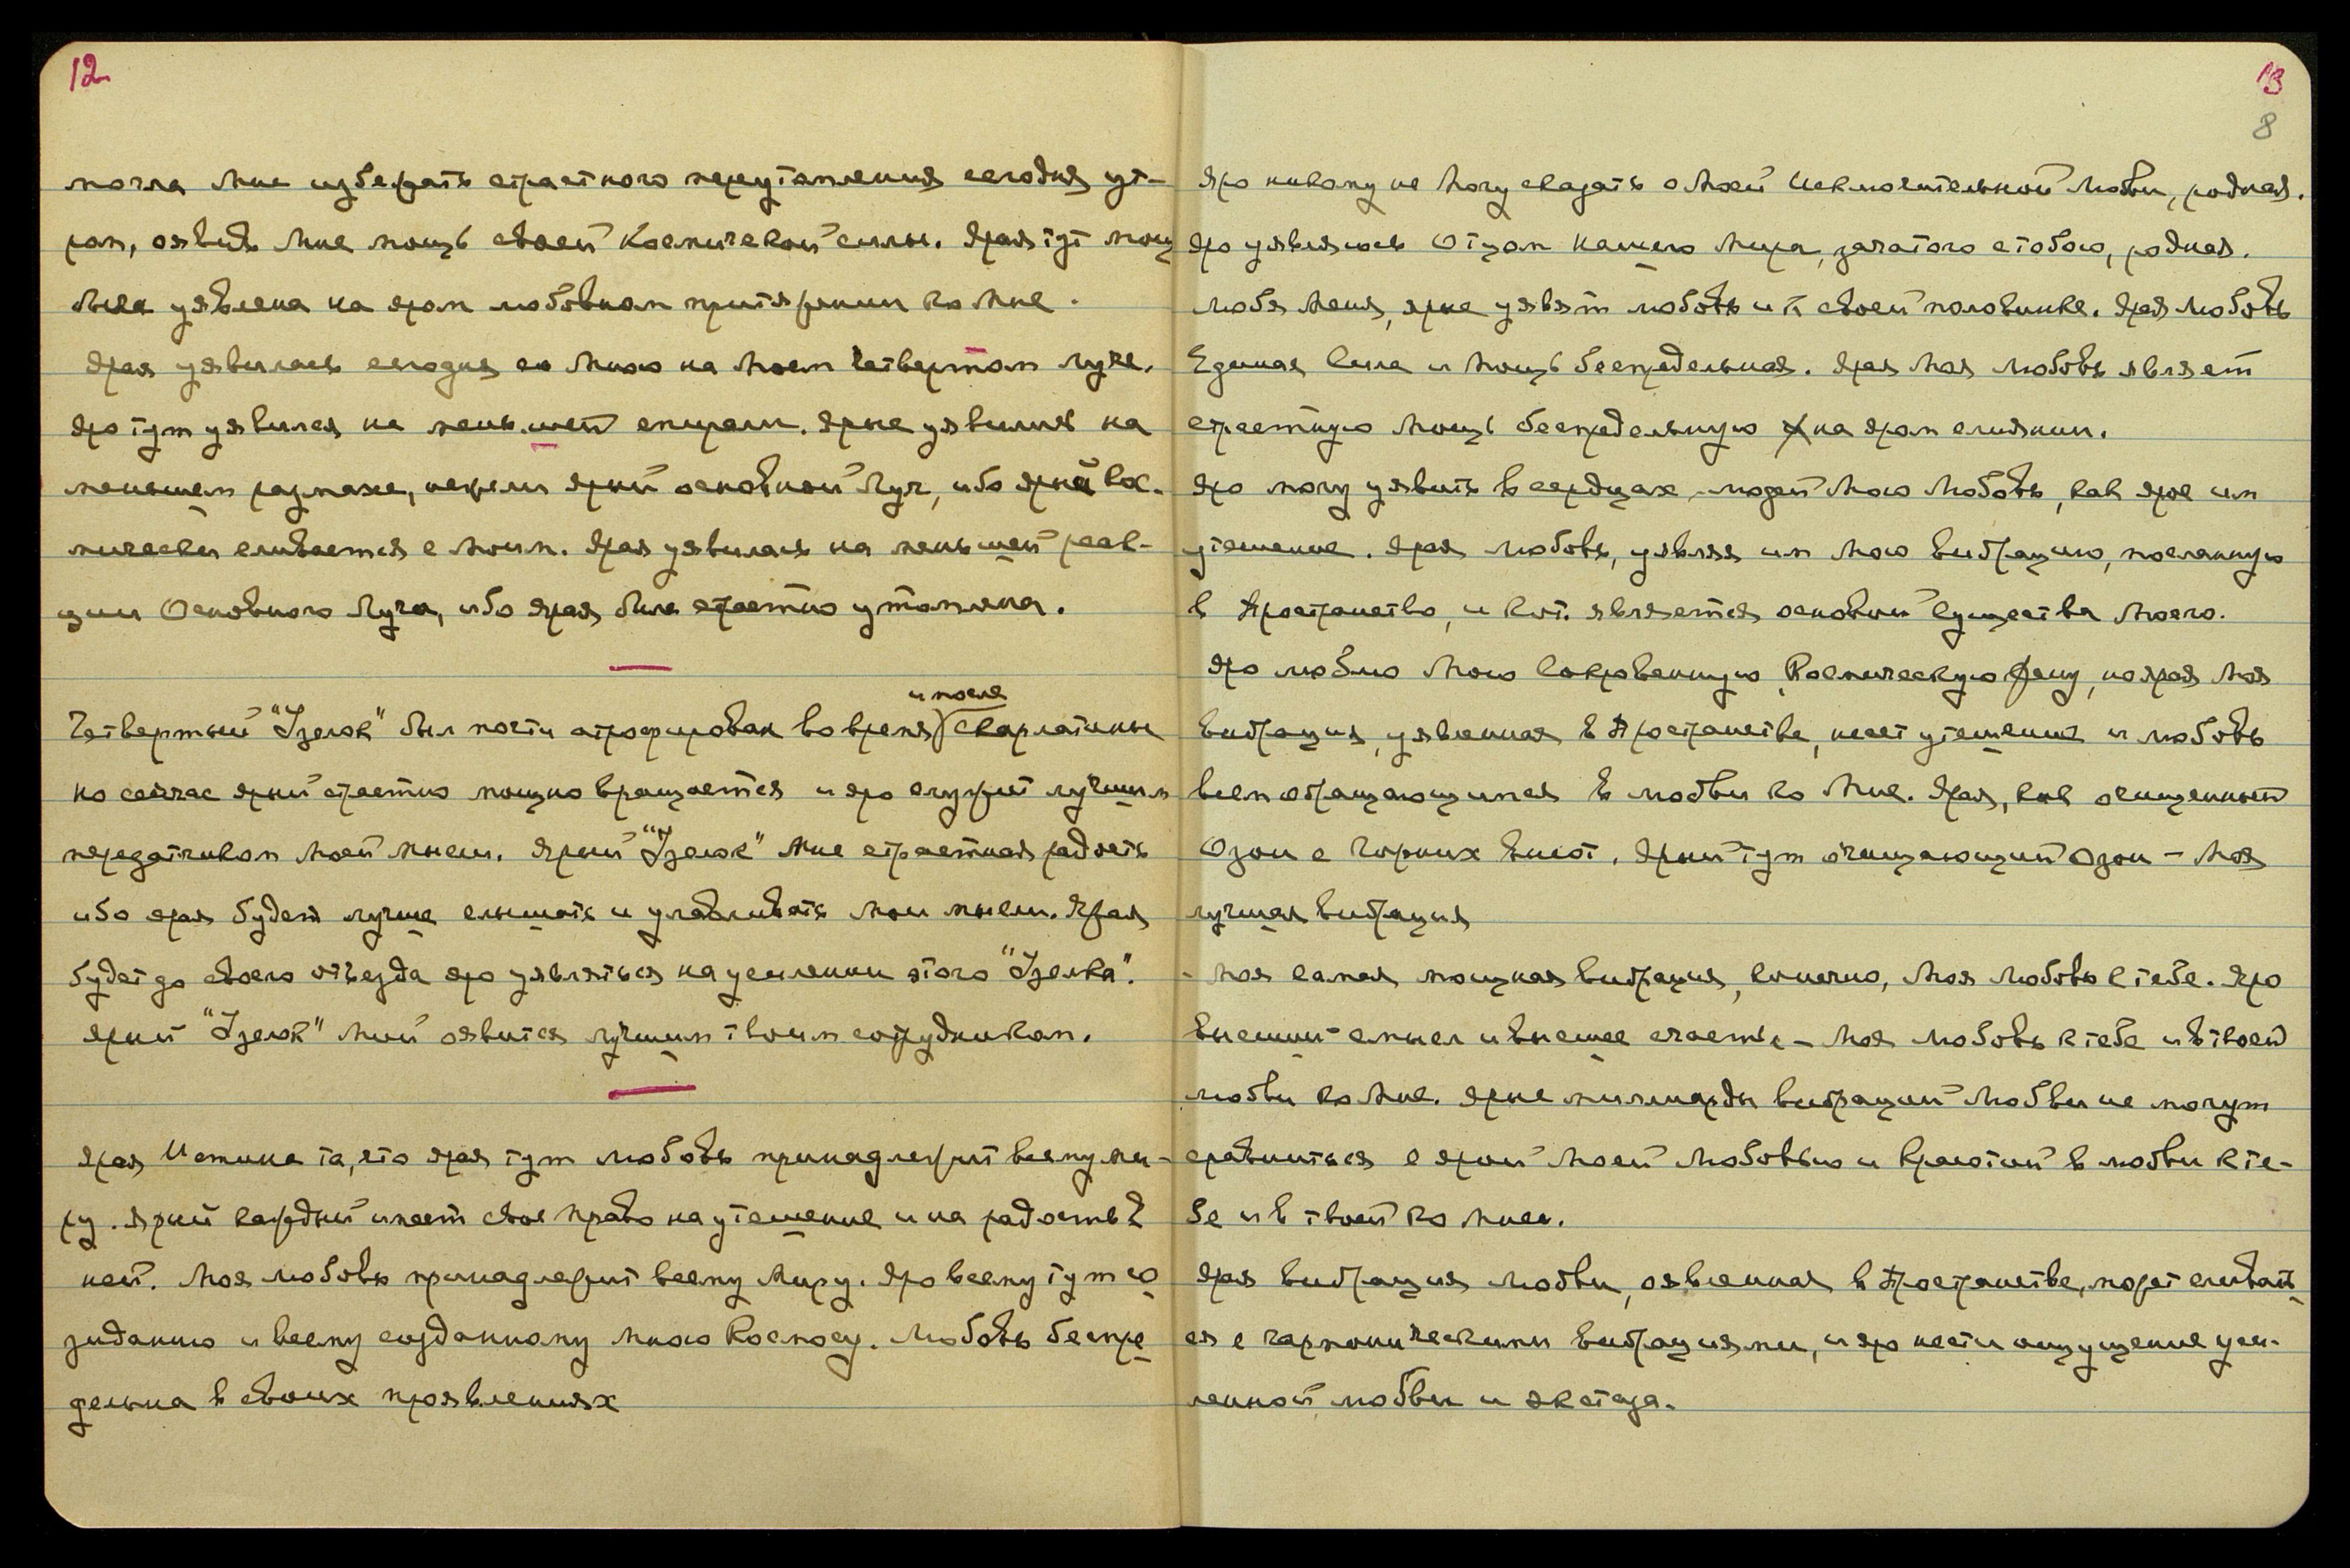 12
могла Мне избежать страстного переутомления сегодня ут-
ром, оявив Мне мощь своей Космической силы. Ярая тут мощ
была уявлена на яром любовном притяжении ко Мне.
Ярая уявилась сегодня со Мною на Моем Четвертом луче.
Яро тут уявился на меньшей спирали. Ярые уявились на
меньшем размахе, нежели ярый основной Луч, ибо ярый кос-
мически сливается с Моим. Ярая уявилась на меньшей реак-
ции Основного Луча, ибо ярая была страстно утомлена.
и после
Четвертый "Узелок" был почти атрофирован во время скарлатины
но сейчас ярый страстно мощно вращается и яро служит лучшим
передатчиком Моей мысли. Ярый "Узелок" Мне страстная радость
ибо ярая будет лучше слышать и улавливать Мои мысли. Ярая
будет до своего отъезда яро уявляться на усилении этого "Узелка".
Ярый "Узелок" Мой оявится лучшим твоим сотрудником.
Ярая Истина та, что ярая тут Любовь принадлежит всему ми-
ру. Ярый каждый имеет свое право на утешение и на радость в
ней. Моя любовь принадлежит всему Миру. Яро всему тут со
зиданию и всему созданному Мною Космосу. Любовь беспре
дельна в своих проявлениях
13
8
Яро никому не Могу сказать о Моей Исключительной Любви, родная.
Яро уявляюсь Отцом нашего Мира, зачатого с тобою, родная.
Любя Меня, ярые уявят любовь и к своей половинке. Ярая Любовь
Единая Сила и Мощь беспредельная. Ярая Моя Любовь являет
страстную Мощь беспредельную на яром слиянии.
Яро могу уявить в сердцах людей Мою Любовь, как ярое им
утешение. Ярая Любовь, уявляя им Мою Вибрацию, посланную
в Пространство, и кот. является основой Существа Моего.
Яро люблю Мою Сокровенную Космическую Жену, но ярая Моя
Вибрация, уявленная в Пространстве, несет утешение и любовь
всем обращающимся в любви ко Мне. Ярая, как очищенный
Озон с Горних Высот. Ярый тут очищающий Озон – Моя
лучшая Вибрация
- Моя самая мощная Вибрация, конечно, Моя Любовь к тебе. Яро
высший смысл и высшее счастье – Моя Любовь к тебе и в твоей
любви ко Мне. Ярые миллиарды вибраций Любви не могут
сравниться с ярой Моей Любовью и Красотой в любви к те-
бе и в твоей ко Мне.
Ярая Вибрация Любви, оявленная в Пространстве, может сливать
ся с гармоническими Вибрациями, и яро нести ощущение уси-
ленной любви и экстаза.